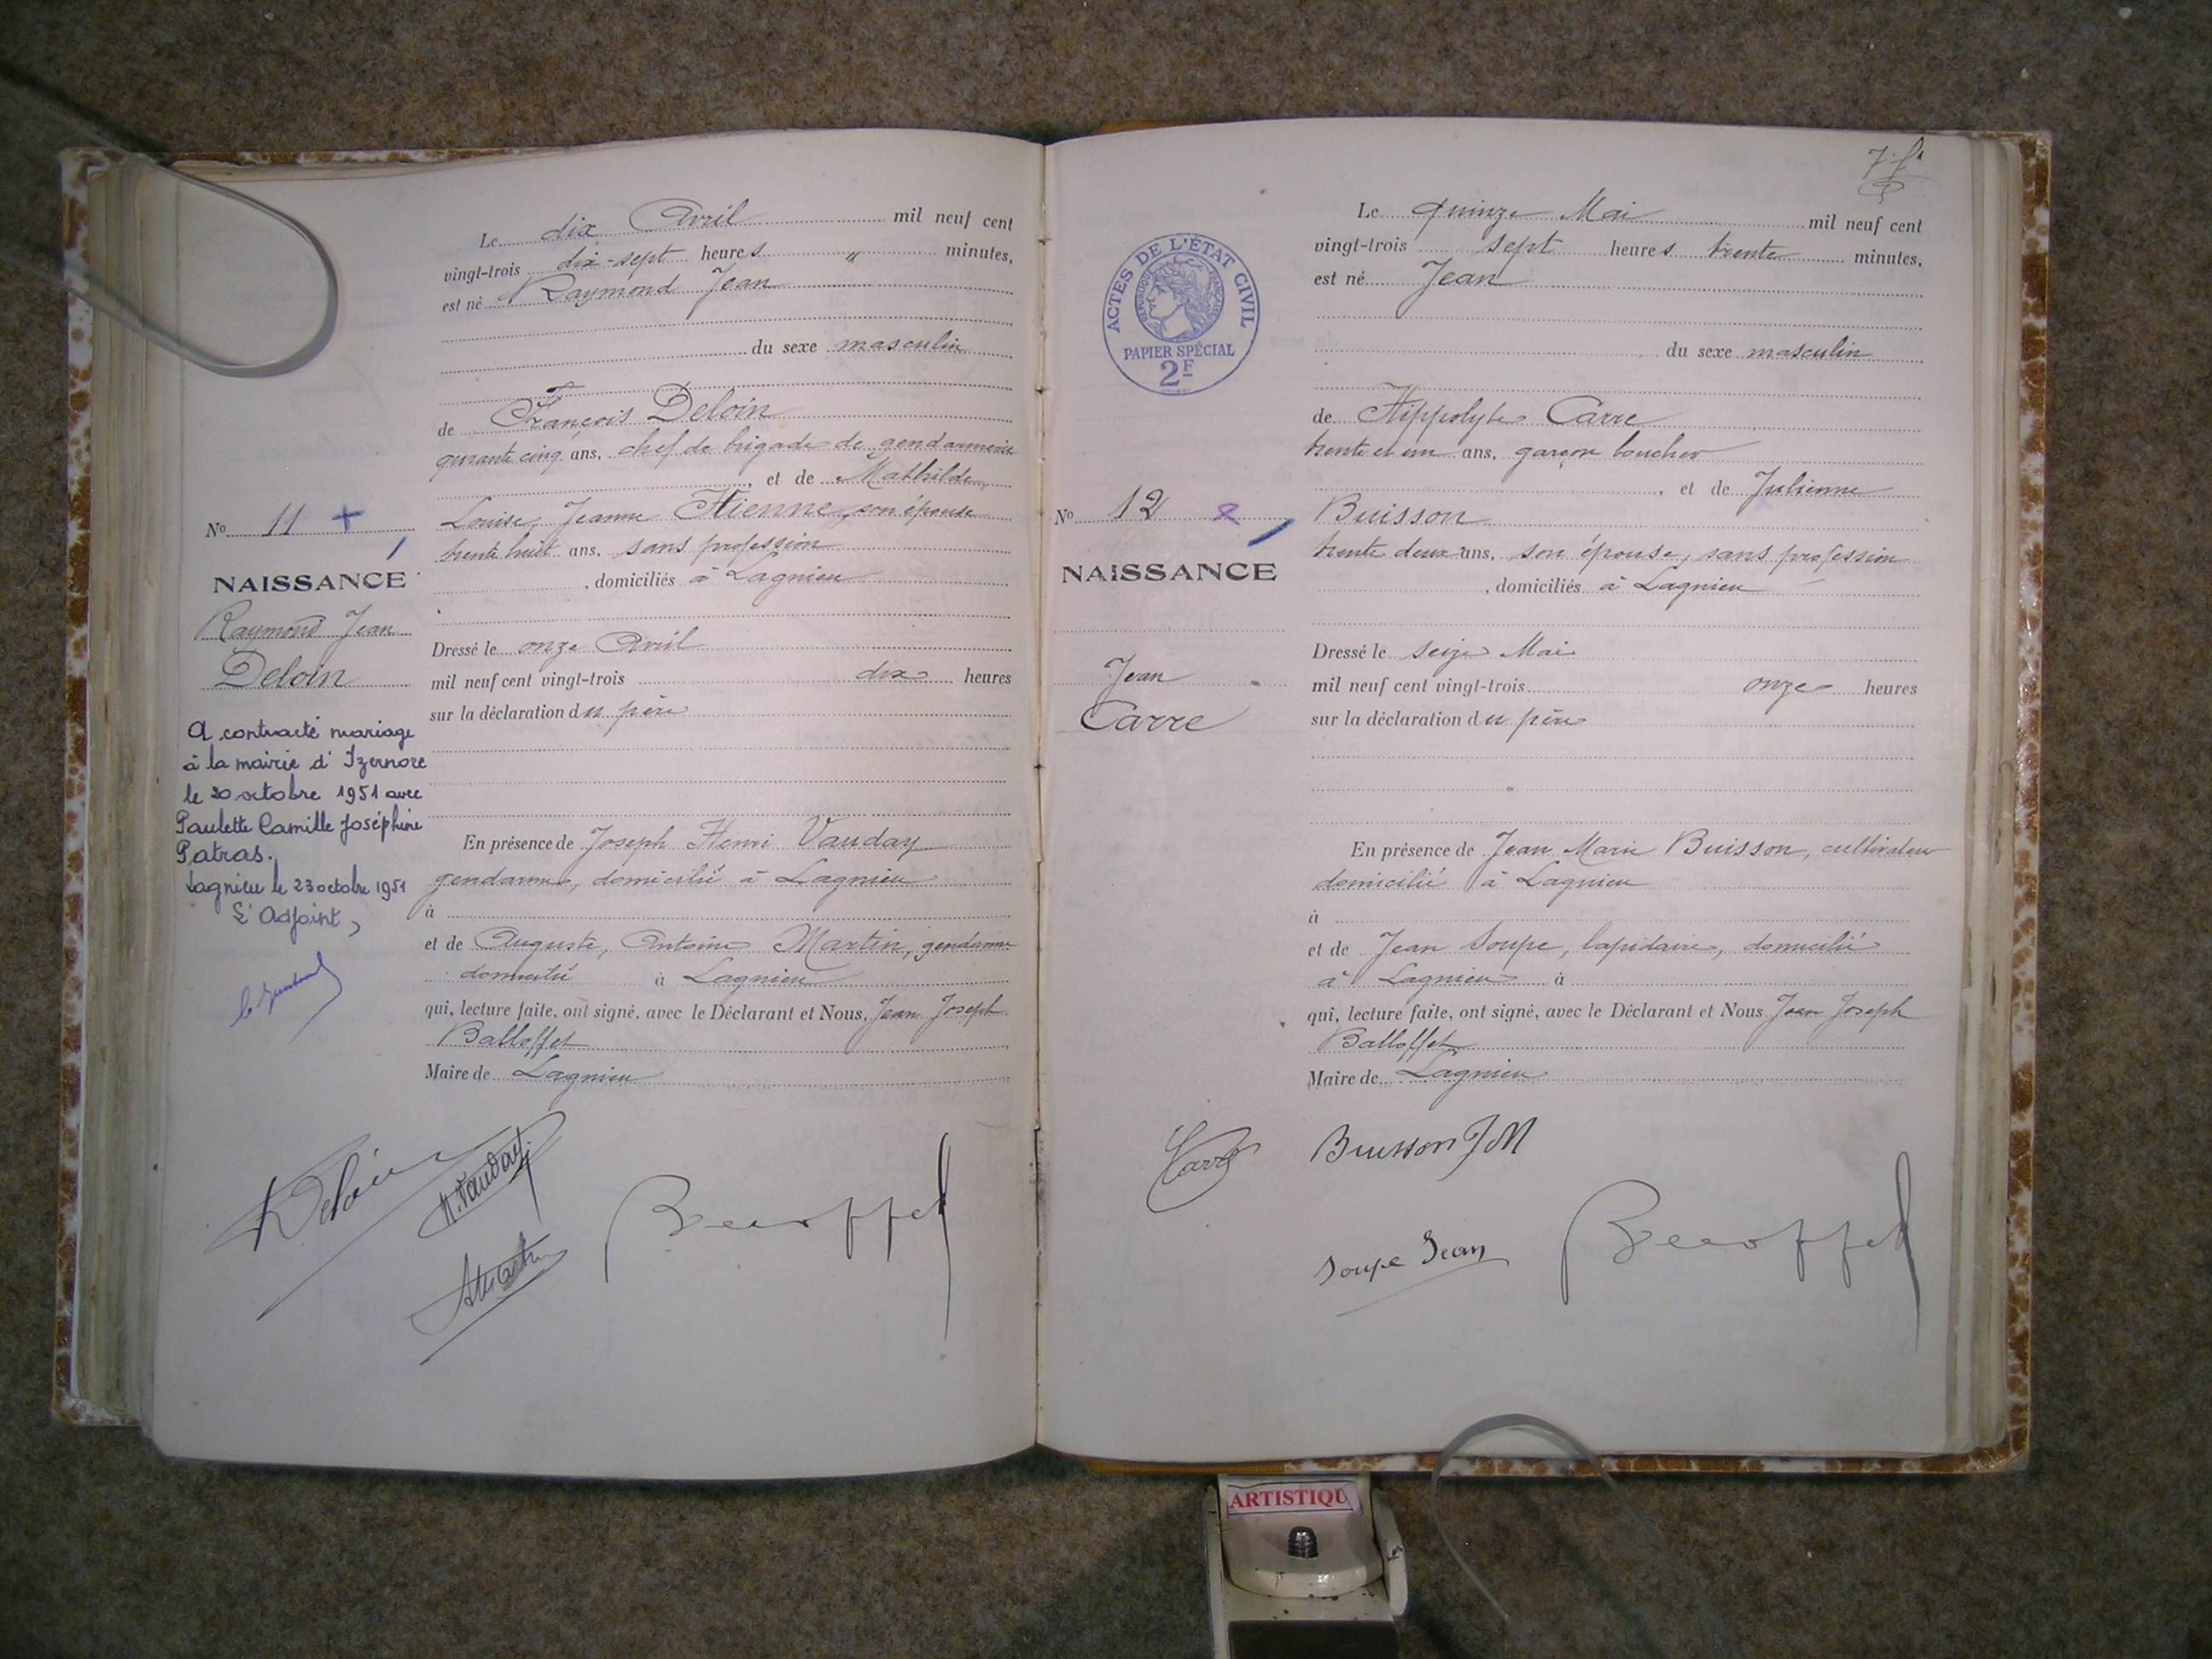 Le dix Avril mil neuf cent
vingt-trois dix-sept heures " minutes,
est né Raymond Jean
du sexe masculin
de François Deloin
quarante cinq ans, chef de brigade de gendarmerie
, et de Mathilde,
Louise, Jeanne Etienne, son épouse
trente huit ans, sans profession
, domiciliés à Lagnieu
Dressé le onze Avril
mil neuf cent vingt-trois dix heures
sur la déclaration du père
En présence de Joseph Henri Vauday
gendarme, domicilié à Lagnieu
à
et de Auguste, Antoine Martin, gendarme
domicilié à Lagnieu
qui, lecture faite, ont signé, avec le Déclarant et Nous, Jean Joseph
Balloffet
Maire de Lagnieu
No 11 +
NAISSANCE
Raymond Jean
Deloin
A contracté mariage
à la mairie d'Izernore
le 20 octobre 1951 avec
Paulette Camille Joséphine
Patras.
Lagnieu le 23 octobre 1951
L'Adjoint,
Deloin
H. Vauday
AMartin
Balloffet
7. f.
Le quinze Mai mil neuf cent
vingt-trois sept heures trente minutes,
est né Jean
du sexe masculin
de Hippolyte Carre
trente et un ans, garçon boucher
, et de Julienne
Buisson
trente deux ans, son épouse, sans profession
, domiciliés à Lagnieu
Dressé le seize Mai
mil neuf cent vingt-trois onze heures
sur la déclaration du père
En présence de Jean Marie Buisson, cultivateur
domicilié à Lagnieu
à
et de Jean Soupe, lapidaire, domicilié
à Lagnieu à
qui, lecture faite, ont signé, avec le Déclarant et Nous Jean Joseph
Balloffet
Maire de Lagnieu
ACTES DE L'ÉTAT CIVIL
RÉPUBLIQUE FRANÇAISE
PAPIER SPÉCIAL
2F
No 12
NAISSANCE
Jean
Carre
Carre
Buisson JM
Soupe Jean
Balloffet
ARTISTIQU